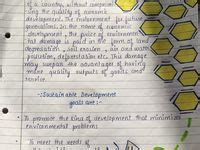 of a country, without comprom
-ising the quality of environ
development. The environment for future
generations. In the name of economic
development, the price of environmen
-tal damage is paid in the form of land
degradation, soil erosion, air and water
pollution, deforestation etc. This damage
may surpass the advantages of having
more quality outputs of goods and
services.
-: Sustainable Development
goals are :-
• To promote the kind of development that minimizes
environmental problems.
• To meet the needs of